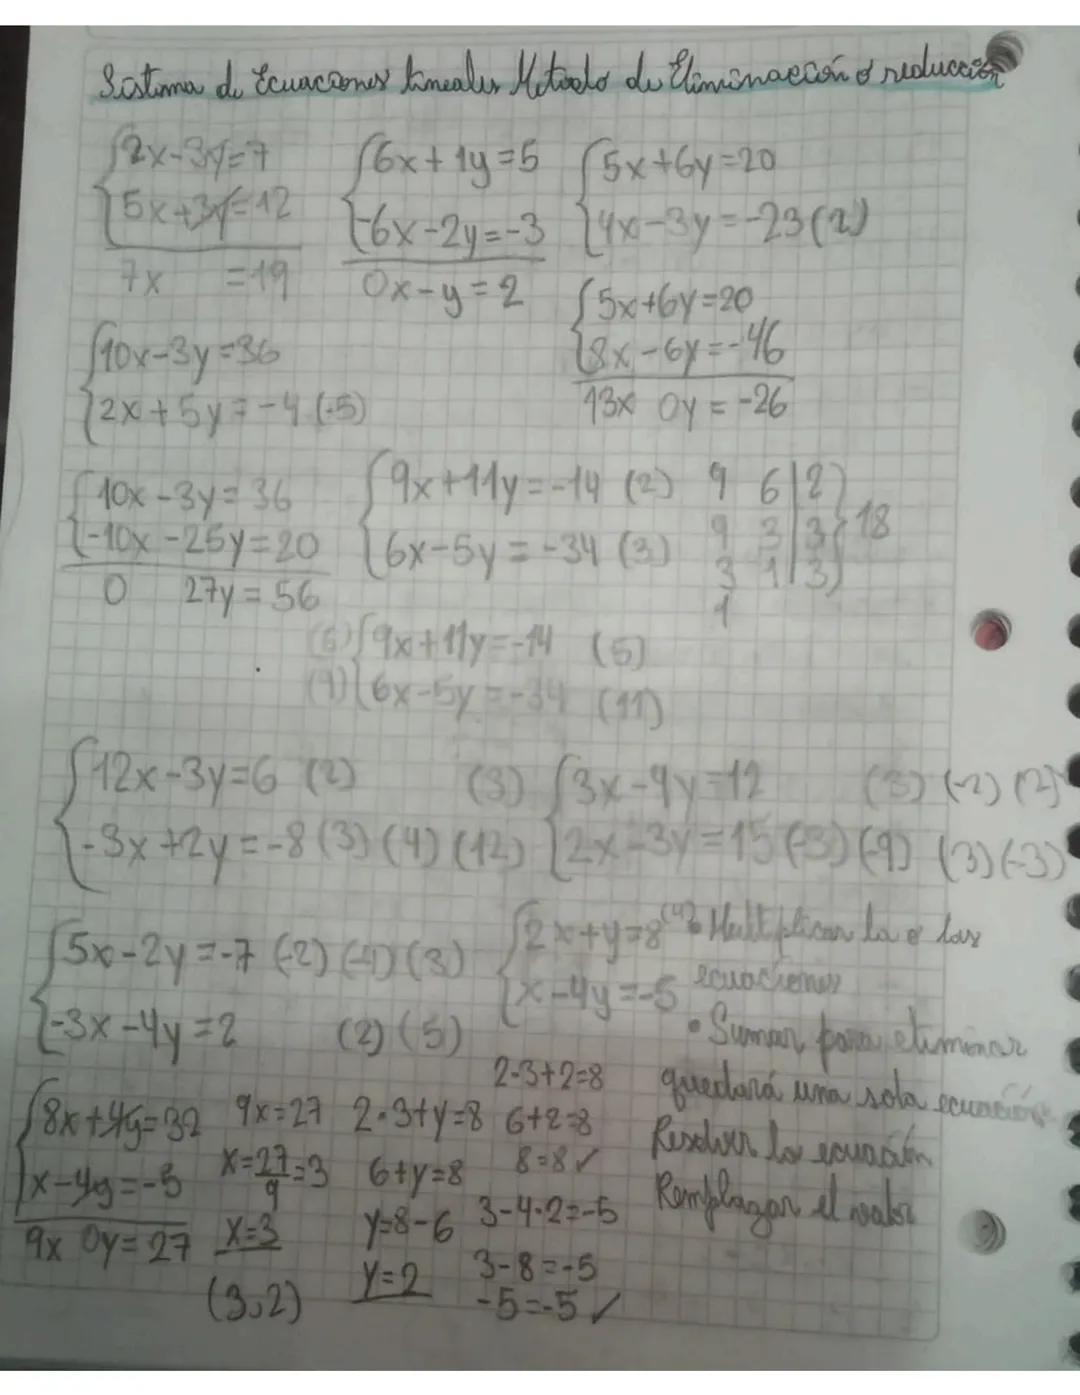 Sistema de Ecuaciones lineales Metodo de Eliminación o reducción
2x-3y=7
5x+3y=12
7x =19
6x+1y=5
-6x-2y=-3
0x-y=2
5x+6y=20
4x-3y=-23(2)
5x+6y=20
8x-6y=-46
13x 0y=-26
10x-3y=36
2x+5y=-4(-5)
10x-3y=36
-10x-25y=20
0 27y=56
9x+11y=-14 (2)
6x-5y=-34 (3)
9 6|2
9 3|3 } 18
3 1|3
1
(6) 9x+11y=-14 (5)
(9) 6x-5y=-34 (11)
12x-3y=6 (2) (3)
-3x+2y=-8 (3) (4) (12)
3x-9y=12 (3) (-2) (2)
2x-3y=15 (-3) (-9) (3) (-3)
5x-2y=-7 (-2) (-4) (3)
-3x-4y=2 (2) (5)
2x+y=8 (4)
x-4y=-5
• Multiplicar la o las
ecuaciones
• Sumar para eliminar
quedará una sola ecuación
Resolver la ecuación
Remplazar el valor
8x+4y=32
x-4y=-5
9x 0y=27
9x=27
x=27/9=3
x=3
(3,2)
2·3+y=8
6+y=8
y=8-6
y=2
2·3+2=8
6+2=8
8=8 ✓
3-4·2=-5
3-8=-5
-5=-5 ✓